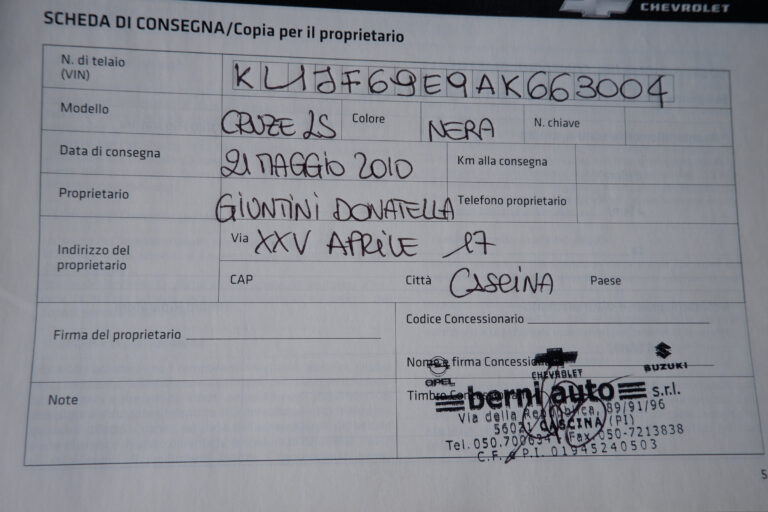 CHEVROLET
SCHEDA DI CONSEGNA/Copia per il proprietario
N. di telaio (VIN) KL1JF69E9AK663004
Modello CRUZE LS Colore NERA N. chiave
Data di consegna 21 MAGGIO 2010 Km alla consegna
Proprietario GIUNTINI DONATELLA Telefono proprietario
Indirizzo del proprietario Via XXV APRILE 17
CAP Città CASCINA Paese
Codice Concessionario
Firma del proprietario
Nome e firma Concessionario
OPEL CHEVROLET SUZUKI
Note Timbro Concessionario
berni auto s.r.l.
Via della Repubblica, 89/91/96
56021 CASCINA (PI)
Tel. 050. Fax 050-7213838
C.F. e P.I. 01945240503